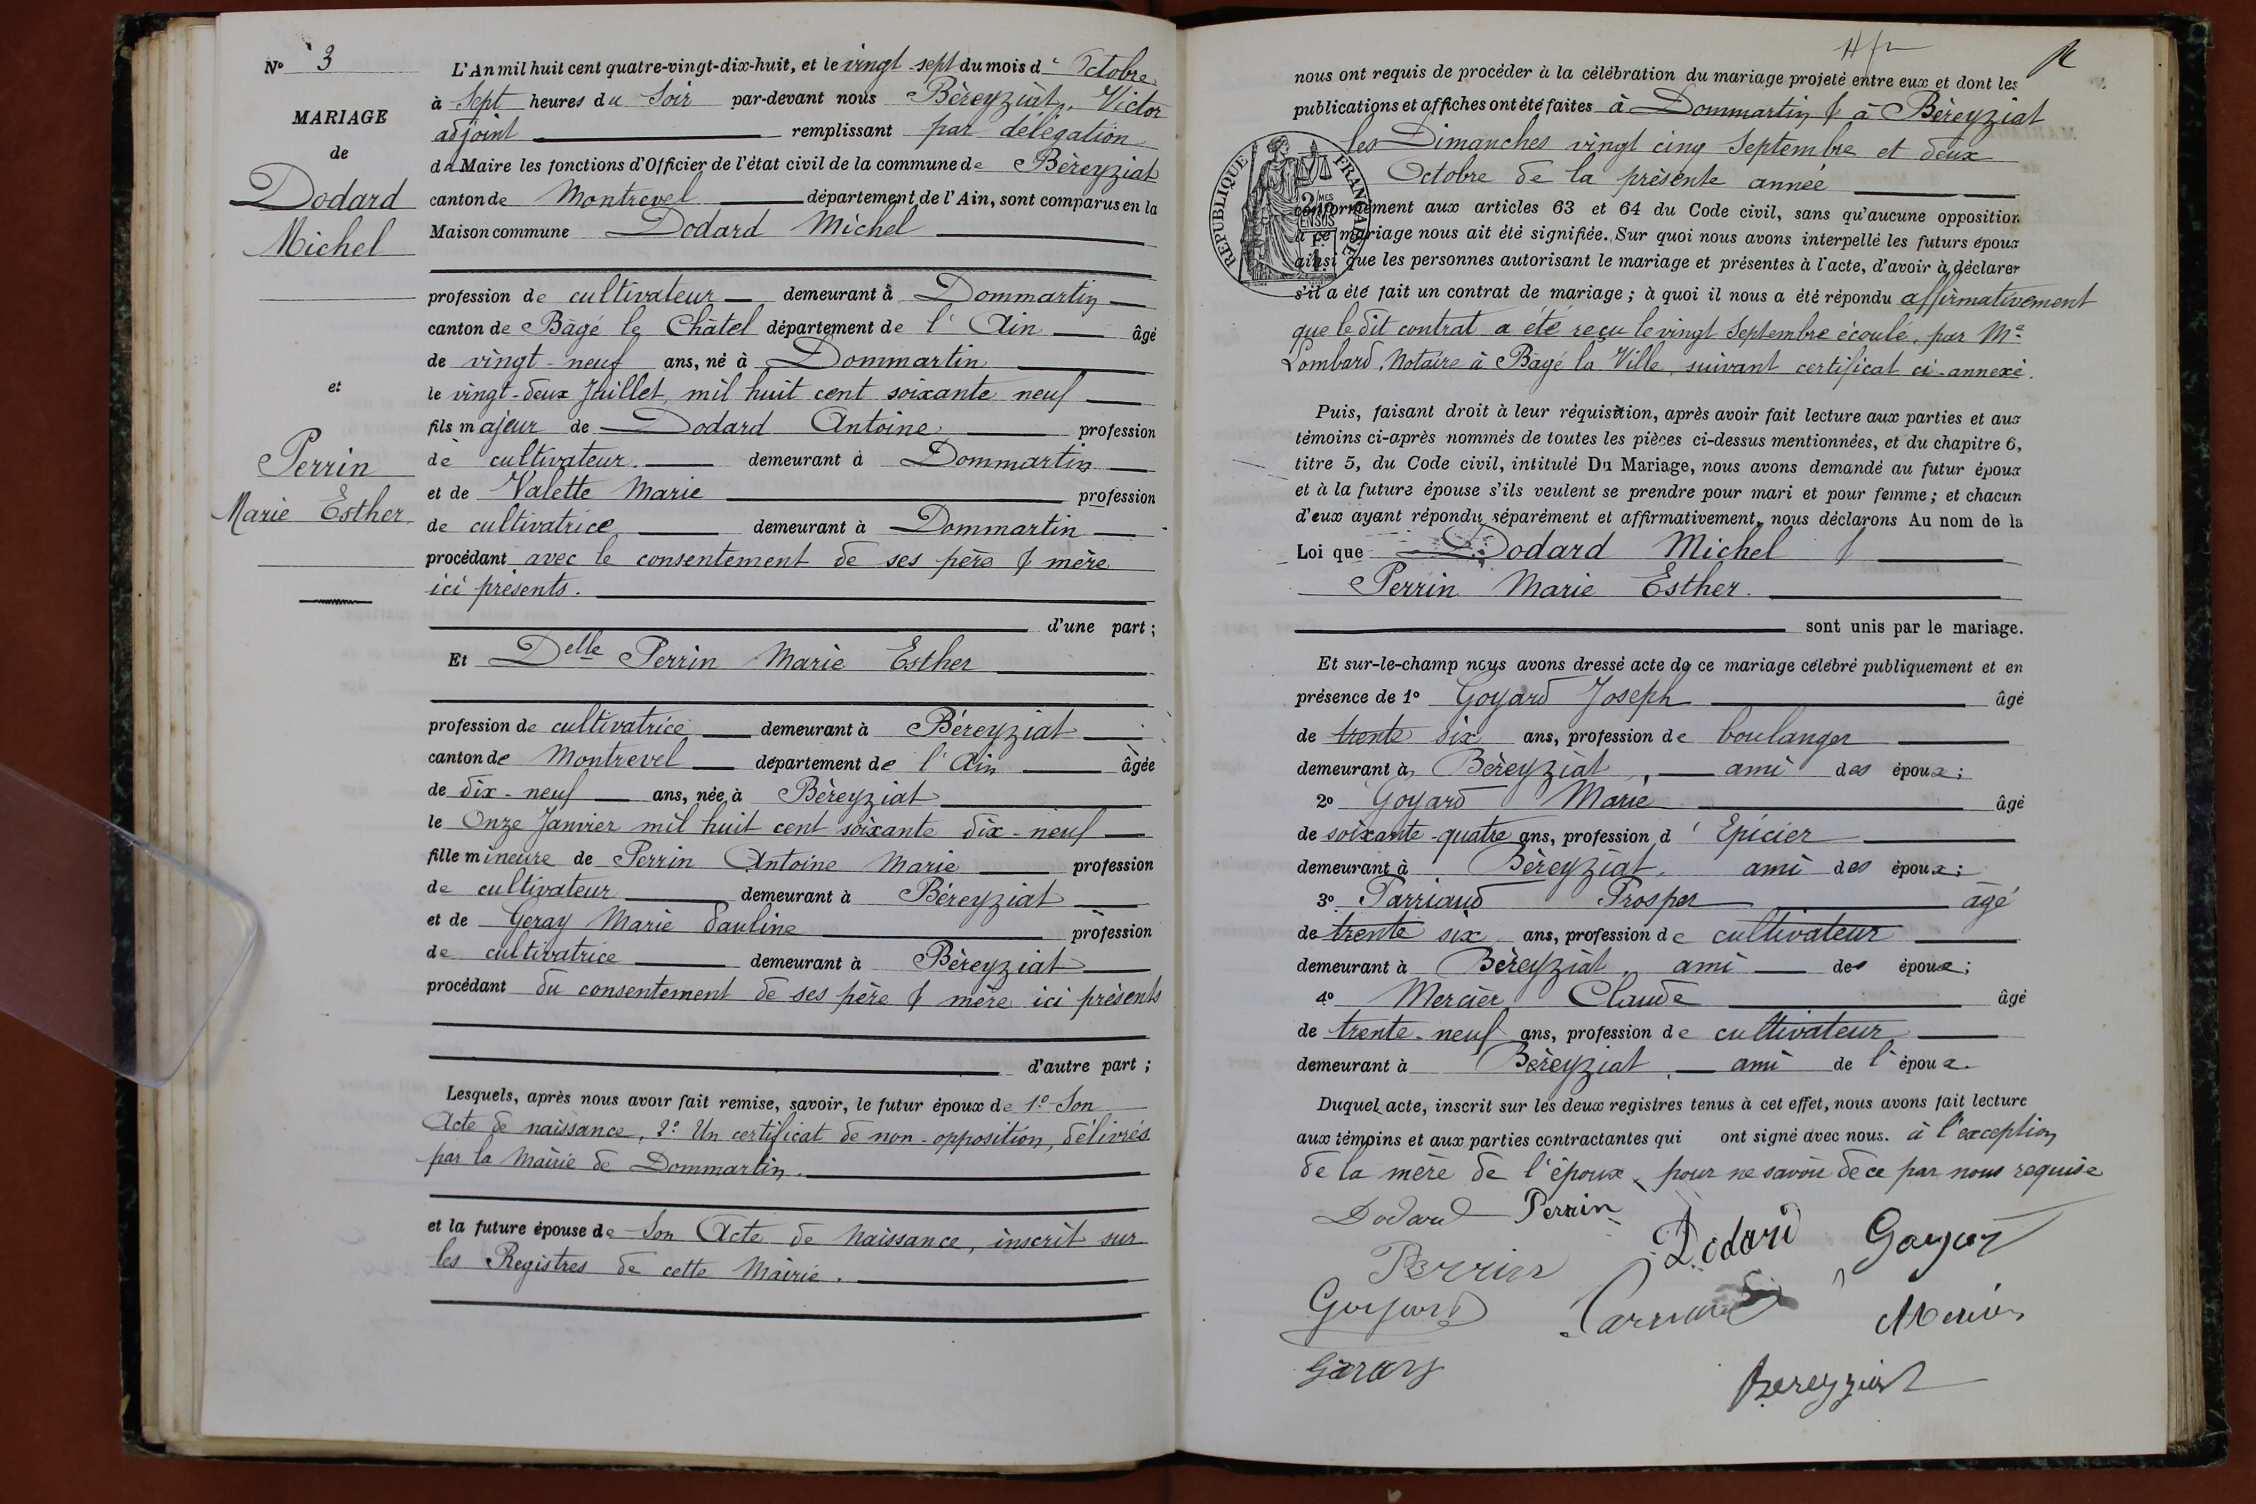 N° 3
MARIAGE
de
Dodard
Michel
et
Perrin
Marie Esther
L'An mil huit cent quatre-vingt-dix-huit, et le vingt-sept du mois d'Octobre
à Sept heures du Soir par-devant nous Béreyziat, Victor
adjoint remplissant par délégation
du Maire les fonctions d'Officier de l'état civil de la commune de Béreyziat
canton de Montrevel département de l'Ain, sont comparus en la
Maison commune Dodard Michel
profession de cultivateur demeurant à Dommartin
canton de Bâgé le Châtel département de l'Ain âgé
de vingt-neuf ans, né à Dommartin
le vingt-deux Juillet mil huit cent soixante neuf
fils majeur de Dodard Antoine profession
de cultivateur demeurant à Dommartin
et de Valette Marie profession
de cultivatrice demeurant à Dommartin
procédant avec le consentement de ses père & mère
ici présents.
d'une part;
Et Delle Perrin Marie Esther
profession de cultivatrice demeurant à Béreyziat
canton de Montrevel département de l'Ain âgée
de dix-neuf ans, née à Béreyziat
le Onze Janvier mil huit cent soixante dix-neuf
fille mineure de Perrin Antoine Marie profession
de cultivateur demeurant à Béreyziat
et de Geray Marie Pauline profession
de cultivatrice demeurant à Béreyziat
procédant du consentement de ses père & mère ici présents
d'autre part;
Lesquels, après nous avoir fait remise, savoir, le futur époux de 1° Son
Acte de naissance, 2° Un certificat de non-opposition, délivrés
par la Mairie de Dommartin.
et la future épouse de Son Acte de Naissance, inscrit sur
les Registres de cette Mairie.
nous ont requis de procéder à la célébration du mariage projeté entre eux et dont les
publications et affiches ont été faites à Dommartin & à Béreyziat
les Dimanches vingt cinq Septembre et deux
Octobre de la présente année
RÉPUBLIQUE FRANÇAISE
conformément aux articles 63 et 64 du Code civil, sans qu'aucune opposition
à ce mariage nous ait été signifiée. Sur quoi nous avons interpellé les futurs époux
ainsi que les personnes autorisant le mariage et présentes à l'acte, d'avoir à déclarer
s'il a été fait un contrat de mariage; à quoi il nous a été répondu affirmativement
que le dit contrat a été reçu le vingt Septembre écoulé, par Me
Lombard, Notaire à Bâgé la Ville, suivant certificat ci-annexé.
Puis, faisant droit à leur réquisition, après avoir fait lecture aux parties et aux
témoins ci-après nommés de toutes les pièces ci-dessus mentionnées, et du chapitre 6,
titre 5, du Code civil, intitulé Du Mariage, nous avons demandé au futur époux
et à la future épouse s'ils veulent se prendre pour mari et pour femme; et chacun
d'eux ayant répondu séparément et affirmativement, nous déclarons Au nom de la
Loi que Dodard Michel &
Perrin Marie Esther.
sont unis par le mariage.
Et sur-le-champ nous avons dressé acte de ce mariage célébré publiquement et en
présence de 1° Goyard Joseph âgé
de trente six ans, profession de boulanger
demeurant à Béreyziat, ami des époux;
2° Goyard Marie âgé
de soixante-quatre ans, profession d'Epicier
demeurant à Béreyziat, ami des époux;
3° Parriaud Prosper âgé
de trente six ans, profession de cultivateur
demeurant à Béreyziat, ami des époux;
4° Mercier Claude âgé
de trente-neuf ans, profession de cultivateur
demeurant à Béreyziat, ami de l'époux.
Duquel acte, inscrit sur les deux registres tenus à cet effet, nous avons fait lecture
aux témoins et aux parties contractantes qui ont signé avec nous. à l'exception
de la mère de l'époux, pour ne savoir de ce par nous requise
Dodard Perrin
Dodard Goyard
Perrin
Goyard Parriaud Mercier
Géray
Bereyziat